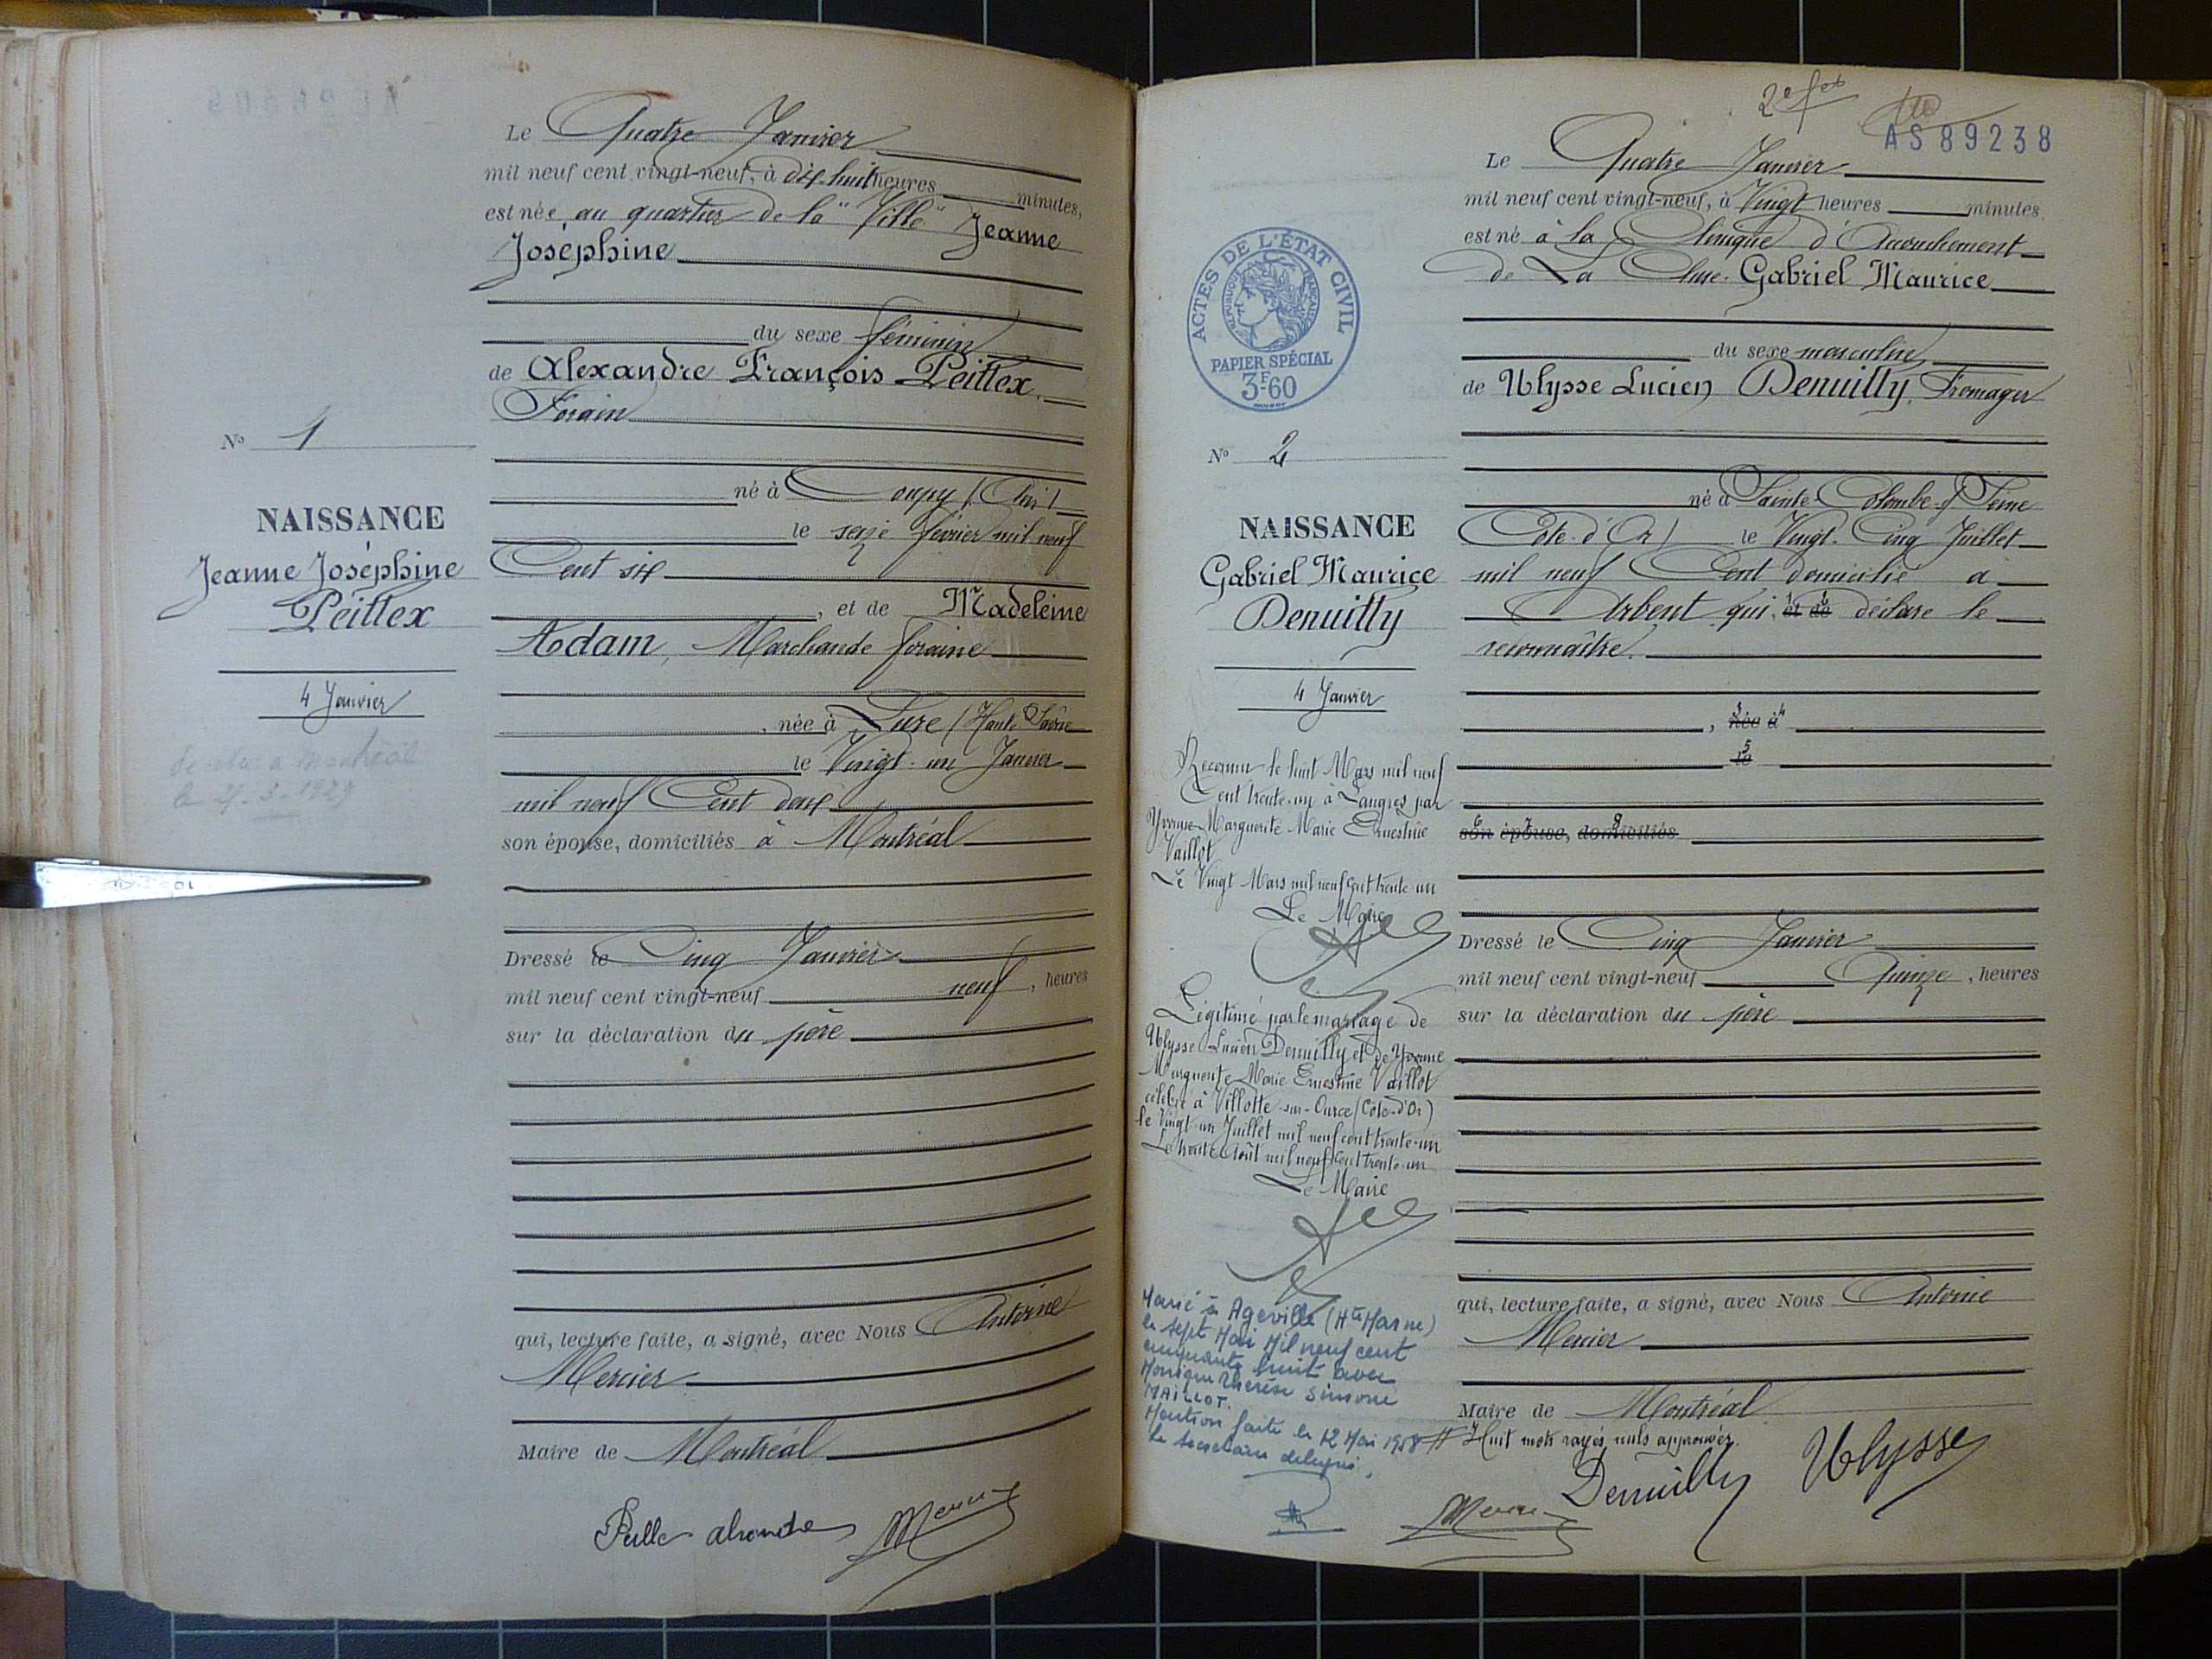 Le Quatre Janvier
mil neuf cent vingt-neuf, à dix-huit heures minutes,
est née au quartier de la "Ville" Jeanne
Joséphine
du sexe féminin
de Alexandre François Peittex,
Forain
N° 1
né à Coupy (Ain)
NAISSANCE
Jeanne Joséphine
Peittex
4 Janvier
le seize février mil neuf
Cent six
, et de Madeleine
Adam, Marchande foraine
, née à Lure (Haute Saône
le Vingt-un Janvier
mil neuf Cent deux
son épouse, domiciliés à Montréal
décédée à Montréal
Dressé le Cinq Janvier
mil neuf cent vingt-neuf neuf, heures
sur la déclaration du père
qui, lecture faite, a signé, avec Nous Antoine
Mercier
Maire de Montréal
2e fet
AS89238
Le Quatre Janvier
mil neuf cent vingt-neuf, à Vingt heures minutes,
est né à la Clinique d'Accouchement
de La Cluse Gabriel Maurice
du sexe masculin
de Ulysse Lucien Denuilly, Fromager
ACTES DE L'ÉTAT CIVIL
RÉPUBLIQUE FRANÇAISE
PAPIER SPÉCIAL
3F60
N° 2
NAISSANCE
Gabriel Maurice
Denuilly
4 Janvier
né à Sainte-Colombe-s/Seine
(Côte-d'Or) le Vingt-Cinq Juillet
mil neuf Cent domicilié à
Arbent qui, et de déclare le
reconnaître.
, née à
le
son épouse, domiciliés
Reconnu le huit Mars mil neuf
Cent trente-un à Langres par
Yvonne Marguerite Marie Ernestine
Vaillot
Le Vingt Mars mil neuf cent trente un
Le Maire
Légitimé par le mariage de
Ulysse Lucien Denuilly et de Yvonne
Marguerite Marie Ernestine Vaillot
célébré à Villotte-sur-Ource (Côte-d'Or)
le Vingt-un Juillet mil neuf cent trente-un
Le trente Août mil neuf cent trente-un
Le Maire
Marié à Ageville (Hte Marne)
le sept Mai Mil neuf cent
cinquante huit avec
Monique Thérèse Simone
MAILLOT.
Mention faite le 12 Mai 1958
Le secrétaire délégué,
Dressé le Cinq Janvier
mil neuf cent vingt-neuf Quinze, heures
sur la déclaration du père
qui, lecture faite, a signé, avec Nous Antoine
Mercier
Maire de Montréal
# Huit mots rayés nuls approuvés.
Denuilly Ulysse